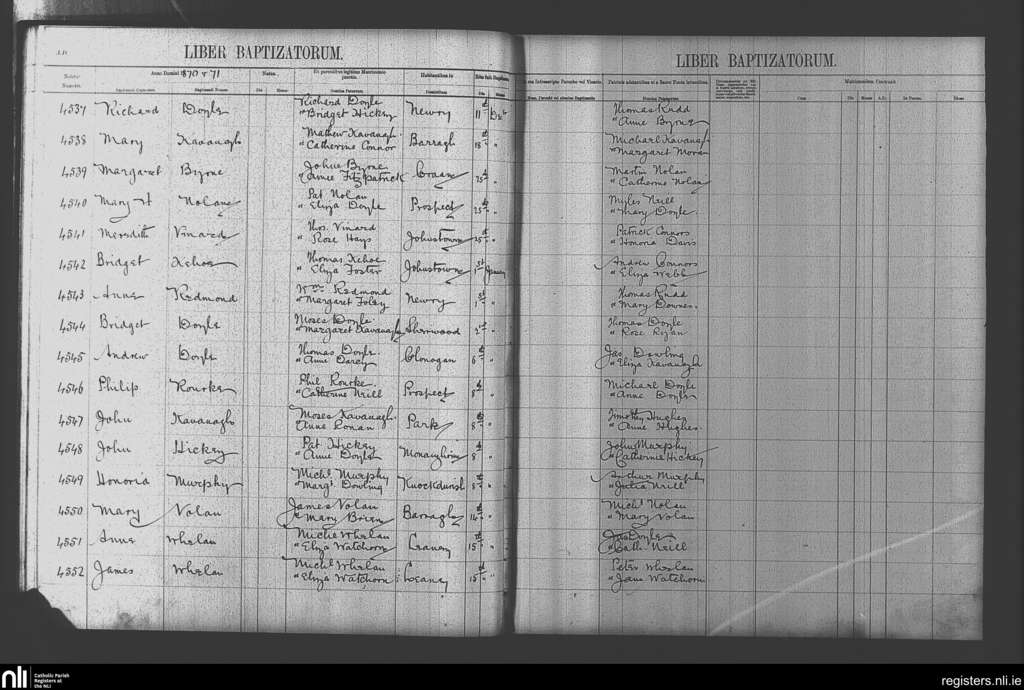 LIBER BAPTIZATORUM.
LIBER BAPTIZATORUM.
Anno Domini 1870 & 71
Natus.
Ex parentibus legitimo Matrimonio junctis.
Habitantibus in
4537 Richard Doyle Richard Doyle Newry 11th Dec Thomas Kudd
" Bridget Hickey " Anne Byrne
4538 Mary Kavanagh Mathew Kavanagh Barragh 18th " Michael Kavanagh
" Catherine Connor " Margaret Moran
4539 Margaret Byrne John Byrne 25th " Martin Nolan
Fitzpatrick " Catherine Nolan
4540 Mary Nolan Pat Nolan Prospect 25th " Myles Neill
" Eliza Doyle " Mary Doyle
4541 Meredith Vinard Thos. Vinard Johnstown 25th " Patrick Connors
" Rose Hays " Honoria Davis
4542 Bridget Kehoe Thomas Kehoe Johnstown 1st Andrew Connors
" Eliza Foster " Eliza Webb
4543 Anne Redmond Wm Redmond Newry 1st " Thomas Kudd
" Margaret Foley " Mary Downes
4544 Bridget Doyle Moses Doyle Sherwood " Thomas Doyle
" Margaret Kavanagh " Rose Ryan
4545 Andrew Doyle Thomas Doyle Clonogan 6th " Jas. Dowling
" Anne Darcy " Eliza Kavanagh
4546 Philip Rourke Phil Rourke Prospect 8th " Michael Doyle
" Catherine Neill " Anne Doyle
4547 John Kavanagh Moses Kavanagh Park 8th " Timothy Hughes
Anne Ronan " Anne Hughes
4548 John Hickey Pat Hickey 8th " John Murphy
" Anne Doyle " Catherine Hickey
4549 Honoria Murphy Michl. Murphy 8th " Arthur Murphy
" Margt. Dowling " Julia Neill
4550 Mary Nolan James Nolan Barragh 14th " Michl Nolan
" Mary Brien " Mary Nolan
4551 Anne Whelan Michl Whelan 15th " Jas Doyle
" Eliza Watchorn " Cath. Neill
4552 James Whelan Michl Whelan 15th " Peter Whelan
" Eliza Watchorn " Jane Watchorn
nli Catholic Parish
Registers at
the NLI
registers.nli.ie